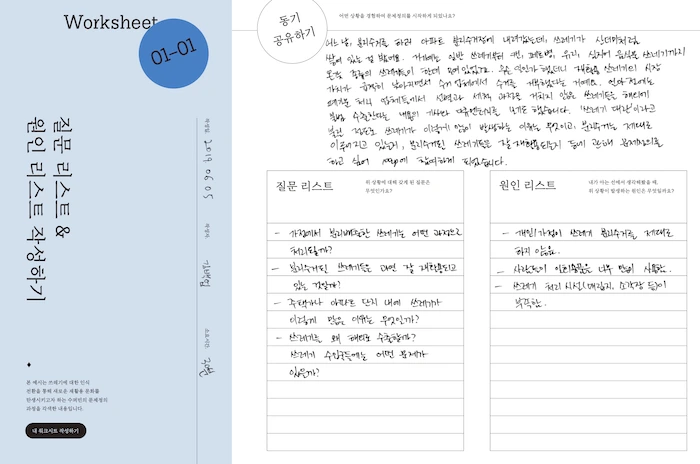 Worksheet
01-01
질문 리스트 &
원인 리스트 작성하기
작성일
2019 06 05
작성자
소요시간
본 예시는 쓰레기에 대한 인식
전환을 통해 새로운 재활용 문화를
탄생시키고자 하는 수퍼빈의 문제정의
과정을 각색한 내용입니다.
내 워크시트 작성하기
동기
공유하기
어떤 상황을 경험하며 문제정의를 시작하게 되었나요?
어느 날, 분리수거를 하러 아파트 분리수거장에 내려갔는데, 쓰레기가 산더미처럼
쌓여 있는 걸 봤어요. 거기에는 일반 쓰레기부터 캔, 페트병, 유리, 심지어 음식물 쓰레기까지
온갖 종류의 쓰레기들이 한데 모여 있었죠. 무슨 일인가 했더니 재활용 쓰레기의 시장
가치가 급격히 낮아지면서 수거 업체에서 수거를 거부했다는 거예요. 언젠가에는
처리 업체에서 선별과 세척 과정을 거치지 않은 쓰레기들을 해외에
불법 수출한다는 내용의 기사와 다큐멘터리를 보기도 했습니다. '쓰레기 대란'이라고
불릴 정도로 쓰레기가 이렇게 많이 발생하는 이유는 무엇이고, 분리수거는 제대로
이루어지고 있는지, 분리수거된 쓰레기들은 잘 재활용되는지 등에 관해 문제정의를
하고 싶어 참여하게 되었습니다.
질문 리스트
위 상황에 대해 갖게 된 질문은
무엇인가요?
- 가정에서 분리배출한 쓰레기는 어떤 과정으로
처리될까?
- 분리수거된 쓰레기들은 과연 잘 재활용되고
있는 것일까?
- 주택가나 아파트 단지 내에 쓰레기가
이렇게 많은 이유는 무엇일까?
- 쓰레기를 왜 해외로 수출할까?
쓰레기 수입국들에는 어떤 문제가
있을까?
원인 리스트
내가 아는 선에서 생각해봤을 때,
위 상황이 발생하는 원인은 무엇일까요?
- 개인/가정이 쓰레기 분리수거를 제대로
하지 않음.
- 사람들이 일회용품을 너무 많이 사용함.
- 쓰레기 처리 시설(매립지, 소각장 등)이
부족함.